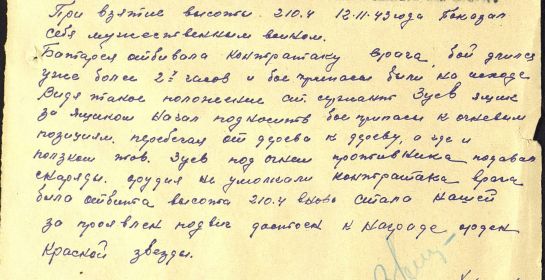 При взятие высоты 210.4 12-11-43 года Показал
себя мужественным воином.
Батарея отбивала контратаку врага, бой длился
уже более 2х часов и боеприпасы были на исходе
Видя такое положение ст. сержант Зуев ящик
за ящиком начал подносить боеприпасы к огневым
позициям. перебегая от дерева к дереву, а где и
ползком тов. Зуев под огнем противника подавал
снаряды. орудия не умолкали контратака врага
была отбита высота 210.4 вновь стала нашей
за проявлен подвиг достоен к награде орден
Красной звезды.